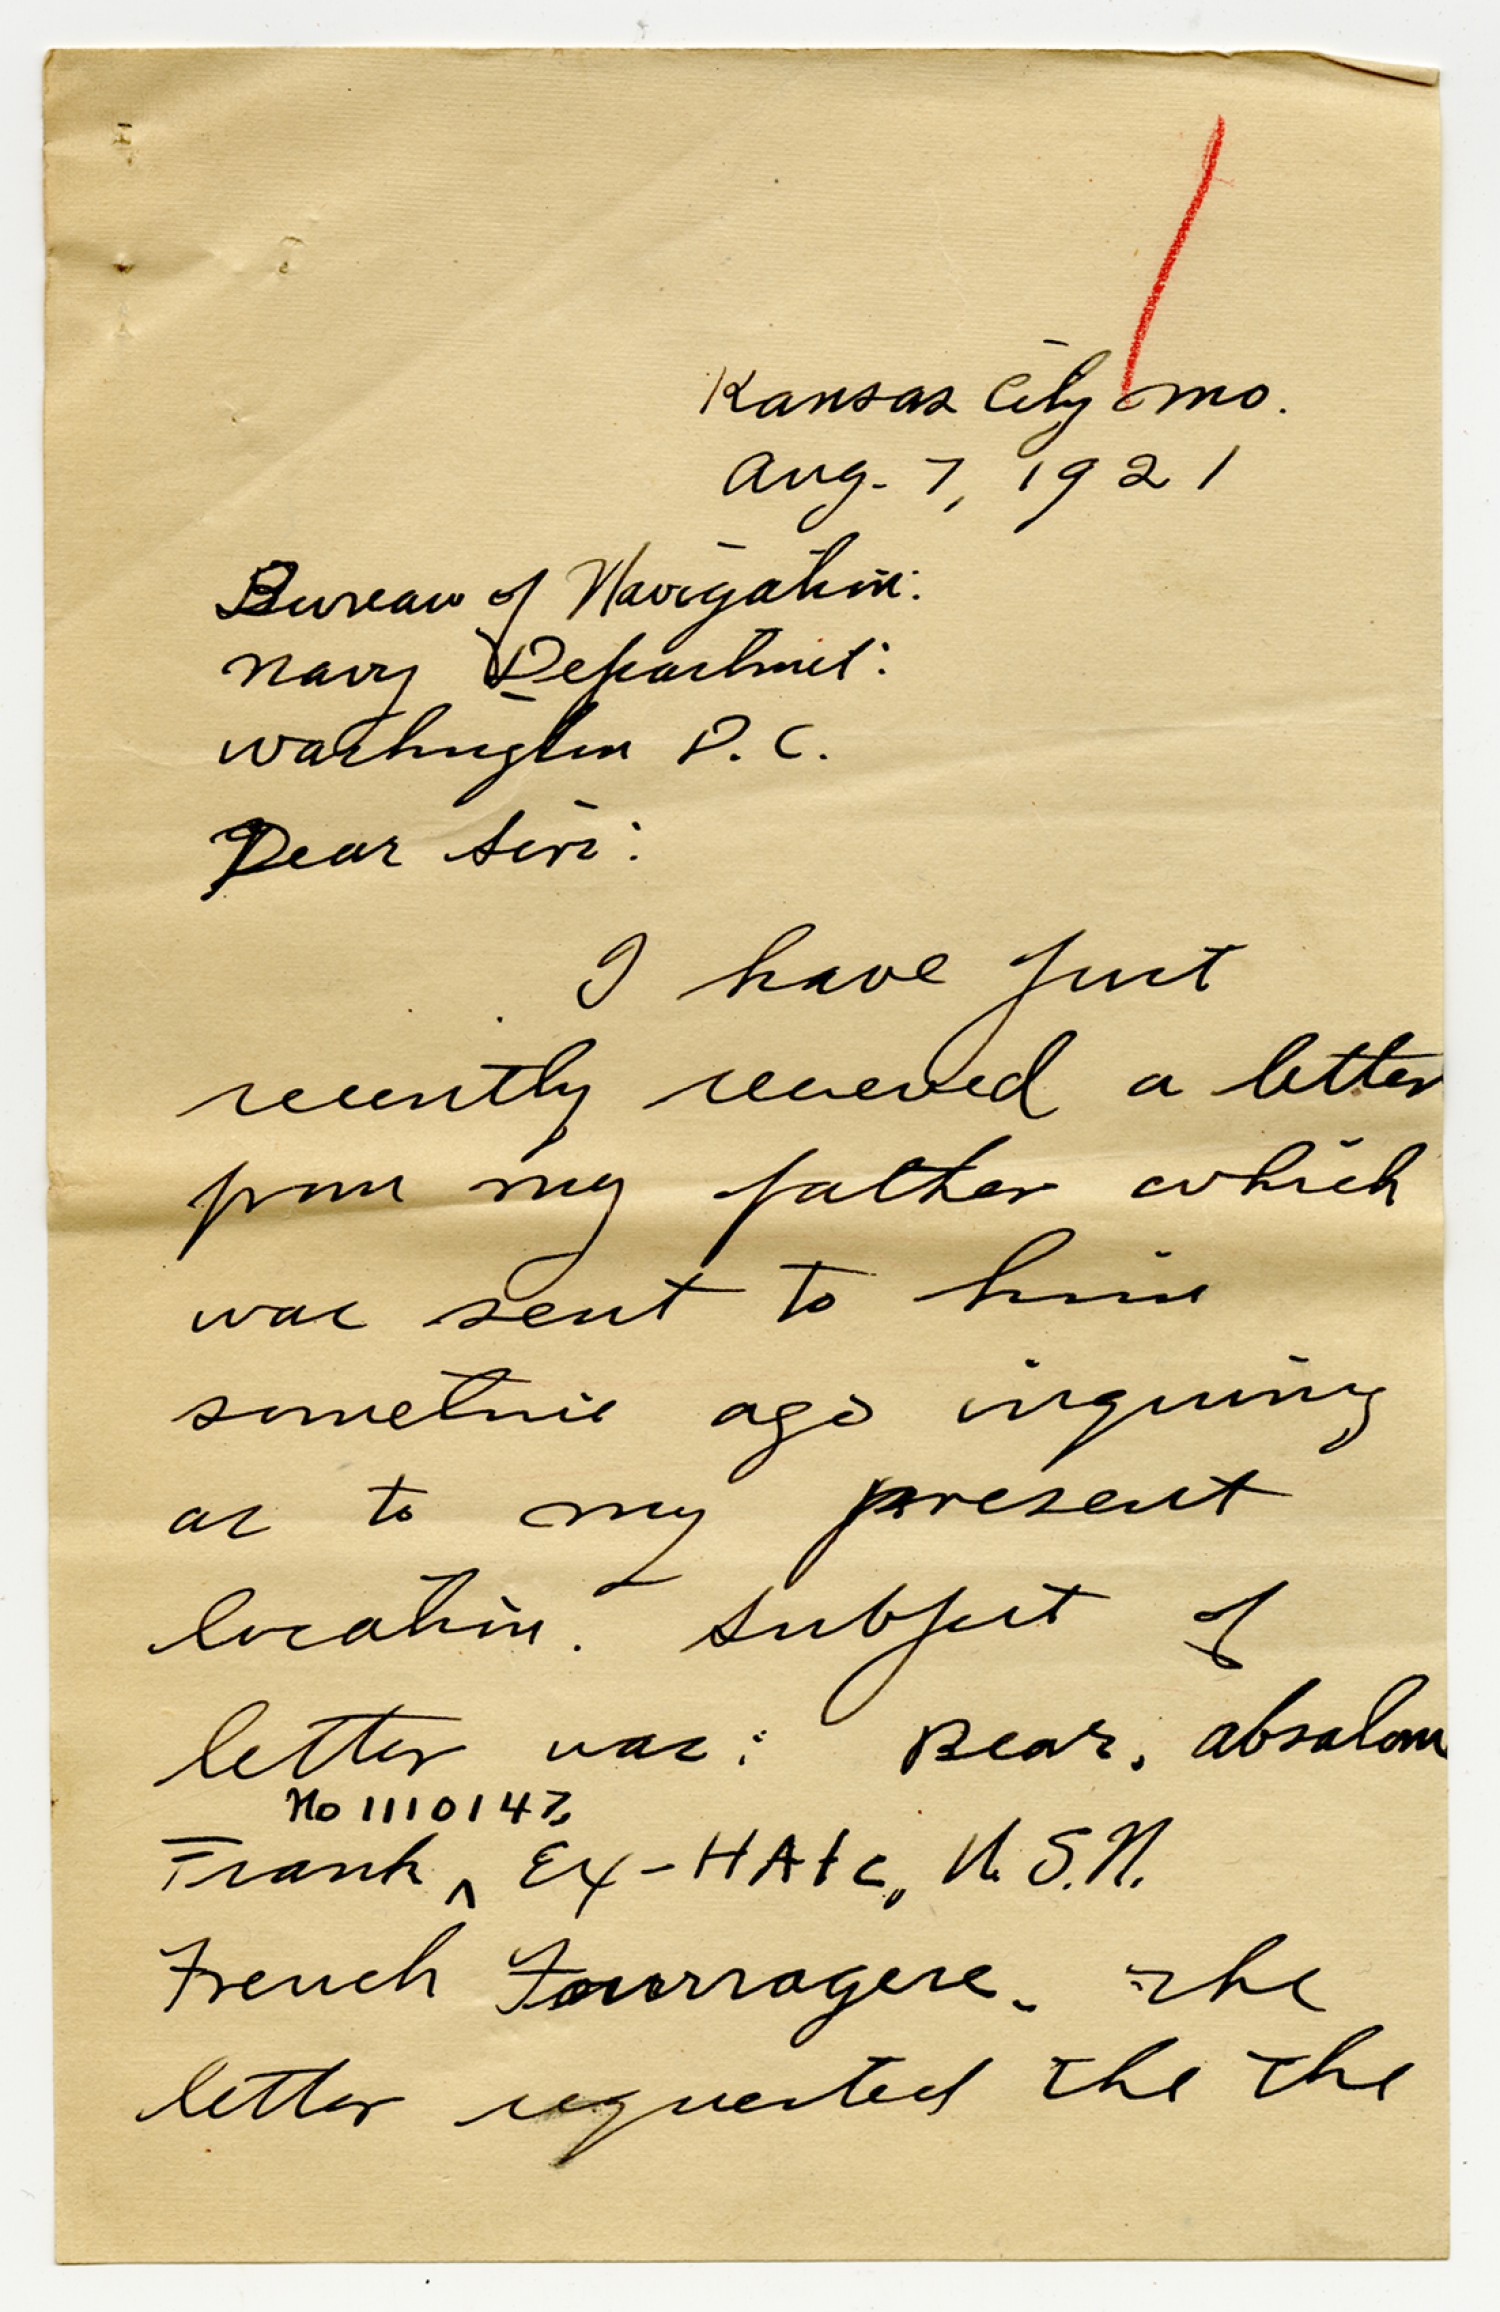 Kansas City Mo.
Aug. 7, 1921
Bureau of Navigation:
Navy Department:
Washington D.C.
Dear Sir:
I have just
recently received a letter
from my father which
was sent to him
sometime ago inquiring
as to my present
location. Subject of
letter was: Bear, Absalom
No 1110147,
Frank ^ Ex-HA1c, U.S.N.
French Fourragere. The
letter requested the the